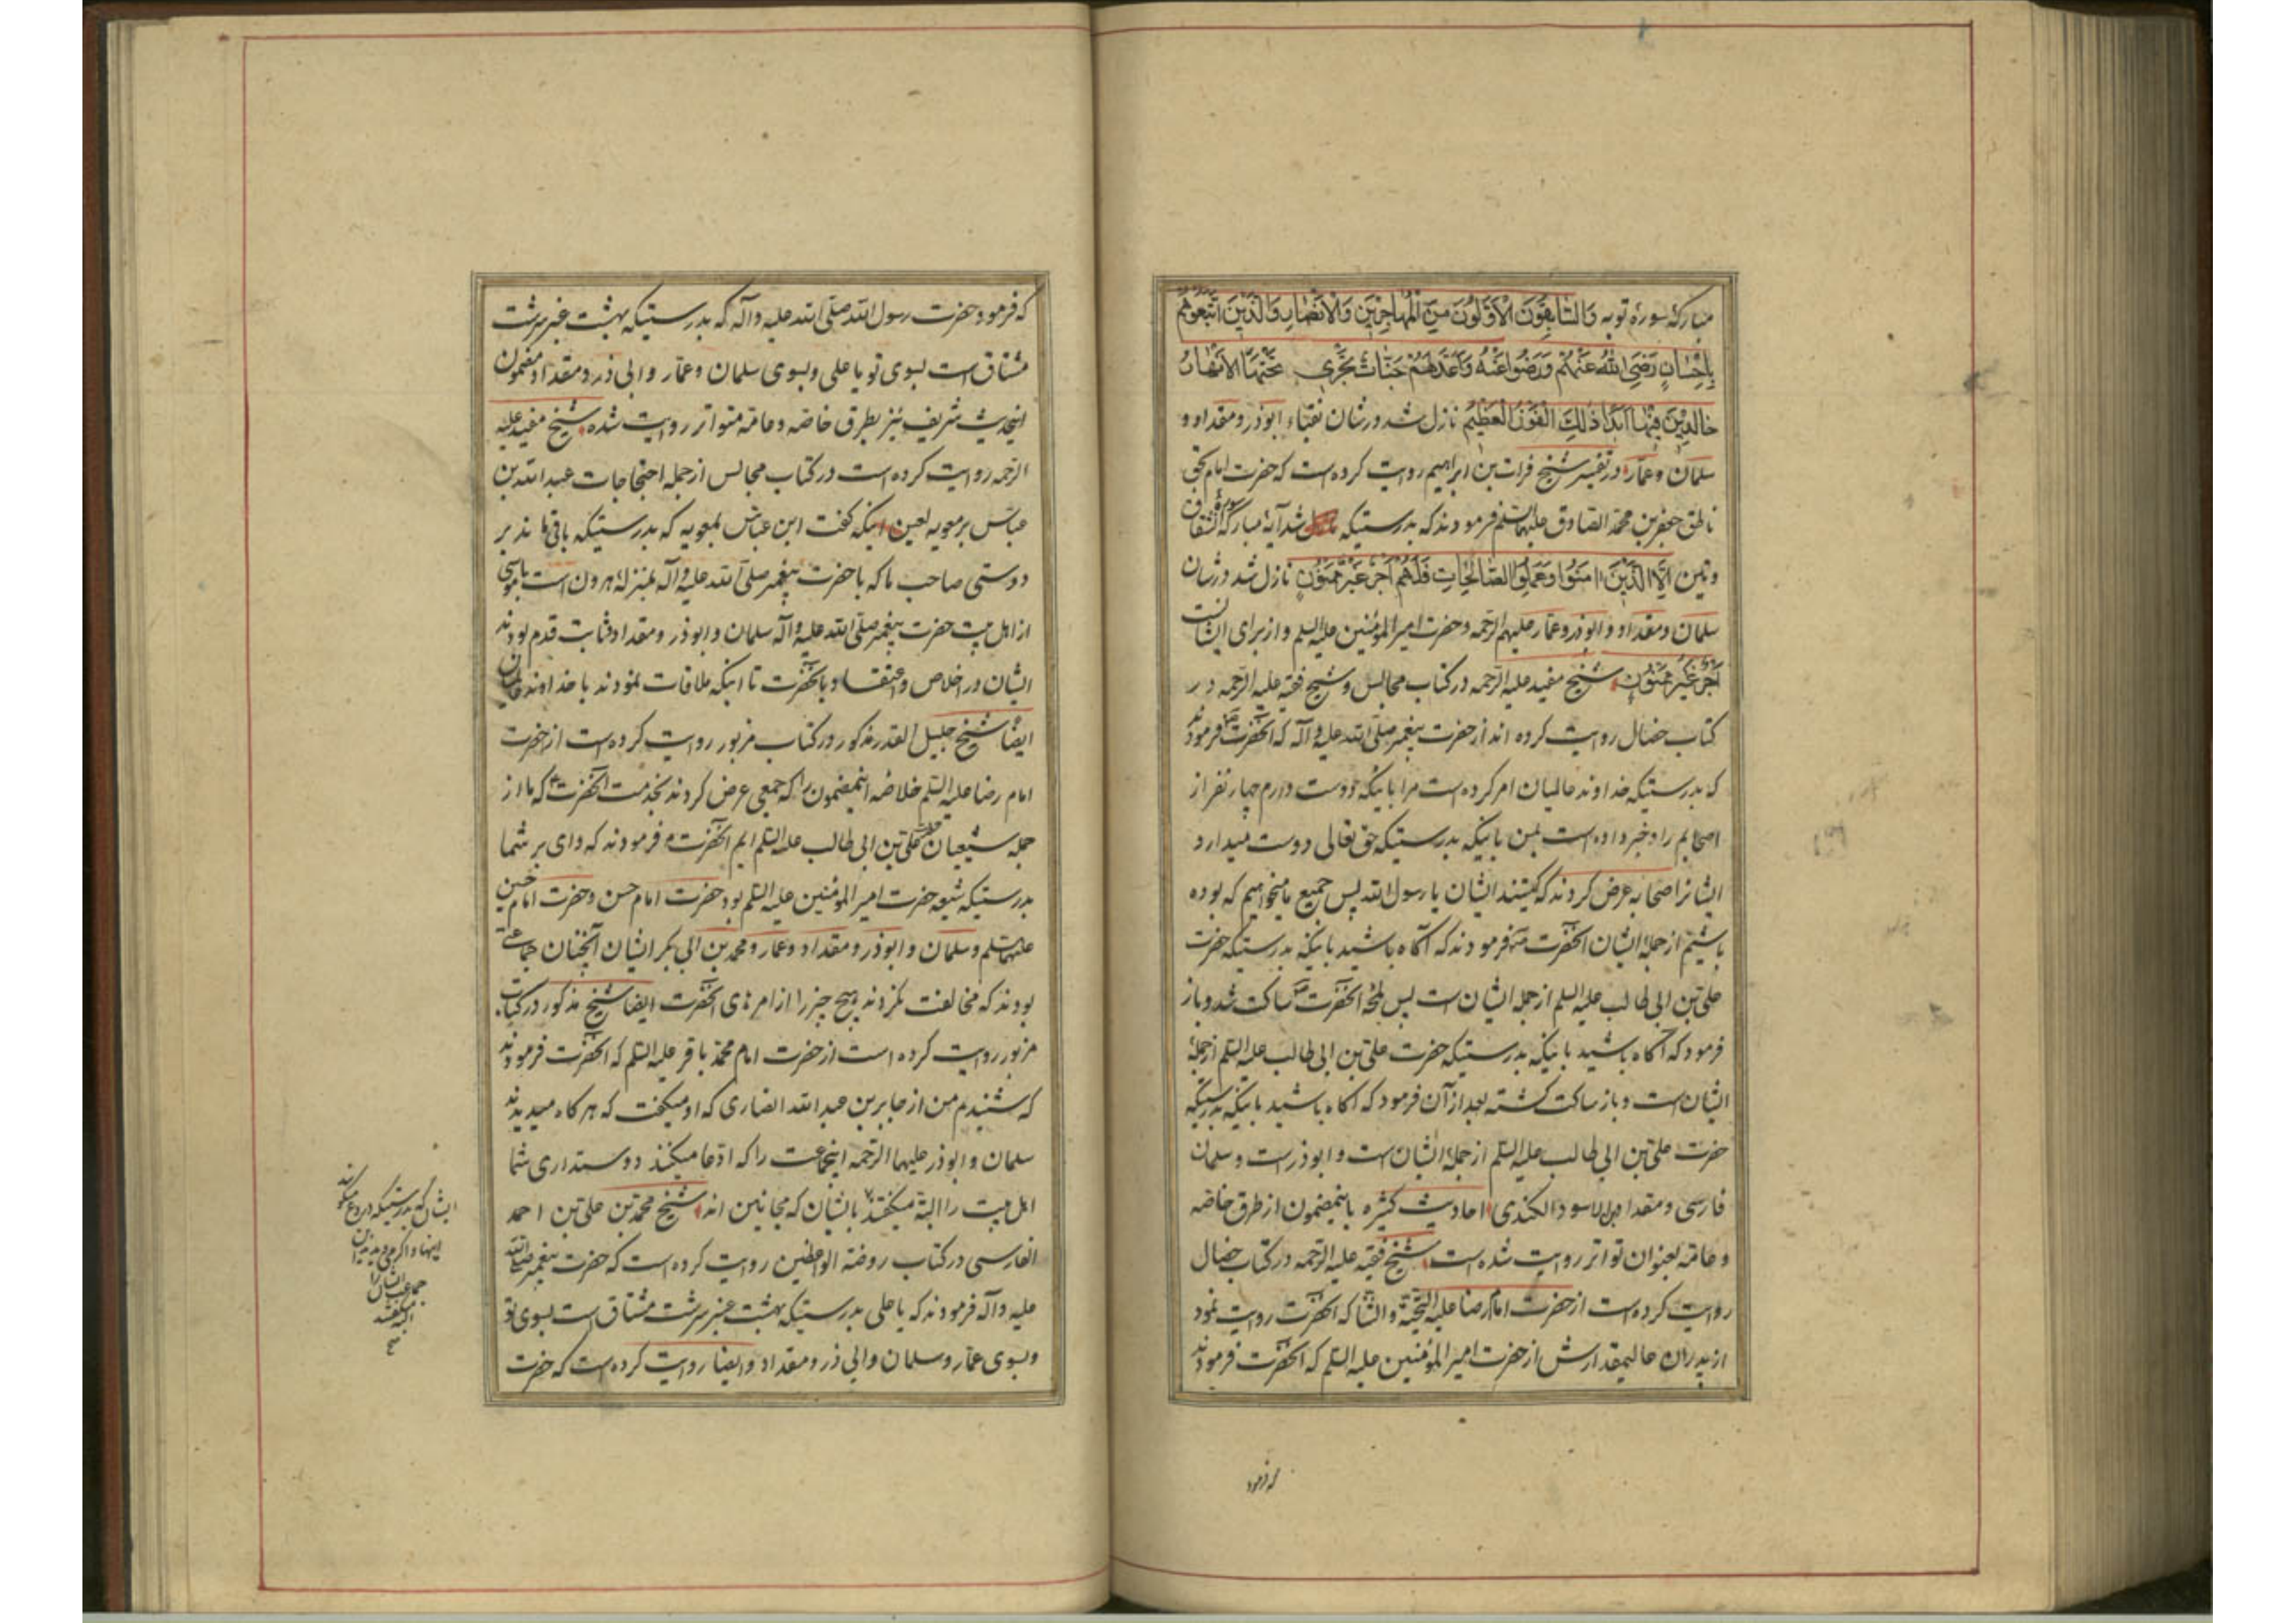 مباركۀ سورۀ توبه وَالسَّابِقُونَ الْأَوَّلُونَ مِنَ الْمُهَاجِرِينَ وَالْأَنْصَارِ وَالَّذِينَ اتَّبَعُوهُمْ
بِإِحْسَانٍ رَضِيَ اللَّهُ عَنْهُمْ وَرَضُوا عَنْهُ وَأَعَدَّ لَهُمْ جَنَّاتٍ تَجْرِي تَحْتَهَا الْأَنْهَارُ
خَالِدِينَ فِيهَا أَبَدًا ذَلِكَ الْفَوْزُ الْعَظِيمُ نازل شد در شان نقباء ابوذر و مقداد و
سلمان و عمّار در تفسیر شیخ فرات بن ابراهیم روایت کرده است که حضرت امام بحق
ناطق جعفر بن محمّد الصادق علیهما السّلم فرمودند که بدرستیکه شد آیۀ مبارکۀ
وتین إِلَّا الَّذِينَ آمَنُوا وَعَمِلُوا الصَّالِحَاتِ فَلَهُمْ أَجْرٌ غَيْرُ مَمْنُونٍ نازل شد در شان
سلمان و مقداد و ابوذر و عمّار علیهم الرّحمه و حضرت امیر المؤمنین علیه السلم و از برای ایشانست
أَجْرٌ غَيْرُ مَمْنُونٍ شیخ مفید علیه الرّحمه در کتاب مجالس و شیخ فقیه علیه الرّحمه در
کتاب خصال روایت کرده اند از حضرت پیغمبر صلّی الله علیه و آله که آنحضرت فرمودند
که بدرستیکه خداوند عالمیان امر کرده است مرا باینکه دوست دارم چهار نفر از
اصحابم را و خبر داده است بمن باینکه بدرستیکه حق تعالی دوست میدارد
ایشانرا صحابه عرض کردند که کیستند ایشان یا رسول الله پس جمیع ما میخواهیم که بوده
باشیم از جملۀ ایشان آنحضرت فرمودند که آگاه باشید باینکه بدرستیکه حضرت
علی بن ابی طالب علیه السلم از جمله ایشان است پس لمحۀ آنحضرت ساکت شد و باز
فرمود که آگاه باشید باینکه بدرستیکه حضرت علی بن ابی طالب علیه السّلم از جملۀ
ایشان است و باز ساکت گشته بعد از آن فرمود که آگاه باشید باینکه بدرستیکه
حضرت علی بن ابی طالب علیه السّلم از جملۀ ایشان است و ابوذر است و سلمان
فارسی و مقداد بن الاسود الکندی احادیث کثیره باینمضمون از طرق خاصّه
و عامّه بعنوان تواتر روایت شده است شیخ فقیه علیه الرّحمه در کتاب خصال
روایت کرده است از حضرت امام رضا علیه التّحیّة و الثّنا که آنحضرت روایت نمود
از پدران عالیمقدارش از حضرت امیر المؤمنین علیه السّلم که آنحضرت فرمودند
که فرمود
که فرمود حضرت رسول الله صلّی الله علیه و آله که بدرستیکه بهشت عنبر سرشت
مشتاق است بسوی تو یا علی و بسوی سلمان و عمّار و ابی ذر و مقداد و مضمون
اینحدیث شریف نیز بطرق خاصّه و عامّه متواتر روایت شده شیخ مفید علیه
الرّحمه روایت کرده است در کتاب مجالس از جمله احتجاجات عبد الله بن
عبّاس بر معویه لعین اینکه گفت ابن عبّاس بمعویه که بدرستیکه باقی ماندند بر
دوستی صاحب ما که با حضرت پیغمبر صلّی الله علیه و آله بمنزلۀ هرون است با موسی
از اهل بیت حضرت پیغمبر صلّی الله علیه و آله سلمان و ابوذر و مقداد و ثابت قدم بودند
ایشان در اخلاص و اعتقاد بآنحضرت تا اینکه ملاقات نمودند با خداوند عالمیان
ایضا شیخ جلیل القدر مذکور در کتاب مزبور روایت کرده است از حضرت
امام رضا علیه السّلم خلاصۀ اینمضمون را که جمعی عرض کردند بخدمت آنحضرت که ما از
جمله شیعیان حضرت علی بن ابی طالب علیه السّلم ایم آنحضرت فرمودند که وای بر شما
بدرستیکه شیعه حضرت امیر المؤمنین علیه السّلم بود حضرت امام حسن و حضرت امام حسین
علیهما السلم و سلمان و ابوذر و مقداد و عمار و محمد بن ابی بکر ایشان آنچنان جماعتی
بودند که مخالفت نکردند هیچ چیز را از امرهای آنحضرت ایضا شیخ مذکور در کتاب
مزبور روایت کرده است از حضرت امام محمّد باقر علیه السّلم که آنحضرت فرمودند
که شنیدم من از جابر بن عبد الله انصاری که او میگفت که هرگاه میدیدند
سلمان و ابوذر علیهما الرّحمه اینجماعت را که ادّعا میکنند دوستداری شما
اهل بیت را البتّه میگفتند بایشان که مجانین اند شیخ محمّد بن علی بن احمد
الفارسی در کتاب روضة الواعظین روایت کرده است که حضرت پیغمبر صلّی الله
علیه و آله فرمودند که یا علی بدرستیکه بهشت عنبر سرشت مشتاق است بسوی تو
و بسوی عمّار و سلمان و ابی ذر و مقداد و ایضا روایت کرده است که حضرت
ایشان که بدرستیکه دروغ میگویند
اینها و اگر میدیدند این
جماعت ایشان را
البته میگفتند